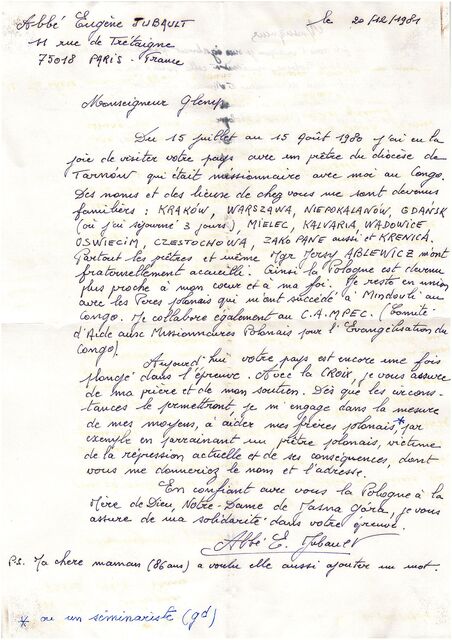 Abbé Eugène JUBAULT
le 20/12/1981
11 rue de Trétaigne
75018 PARIS - France
Monseigneur Glemp
Du 15 juillet au 15 Août 1980 j'ai eu la
joie de visiter votre pays avec un prêtre du diocèse de
TARNÓW qui était missionnaire avec moi au Congo.
Des noms et des lieux de chez vous me sont devenus
familiers : KRAKÓW, WARSZAWA, NIEPOKALANÓW, GDAŃSK
(où j'ai séjourné 3 jours), MIELEC, KALVARIA, WADOWICE
OSWIECIM, CZESTOCHOWA, ZAKOPANE aussi et KRENICA.
Partout les prêtres et même Mgr Jersy ABLEWICZ m'ont
fraternellement accueilli. Ainsi la Pologne est devenue
plus proche à mon cœur et à ma foi. Je reste en union
avec les Pères polonais qui m'ont succédé à Mindouli au
Congo. Je collabore également au C.A.MPEC. (Comité
d'Aide aux Missionnaires Polonais pour l'Evangélisation du
Congo).
Aujourd'hui votre pays est encore une fois
plongé dans l'épreuve. Avec la CROIX, je vous assure
de ma prière et de mon soutien. Dès que les circons-
tances le permettront, je m'engage dans la mesure
de mes moyens, à aider mes frères polonais,* par
exemple en parrainant un prêtre polonais, victime
de la répression actuelle et de ses conséquences, dont
vous me donneriez le nom et l'adresse.
En confiant avec vous la Pologne à la
Mère de Dieu, Notre-Dame de Jasna Góra, je vous
assure de ma solidarité dans votre épreuve.
Abbé E. Jubault
P.S. Ma chère maman (86 ans) a voulu elle aussi ajouter un mot.
* ou un séminariste (gd)